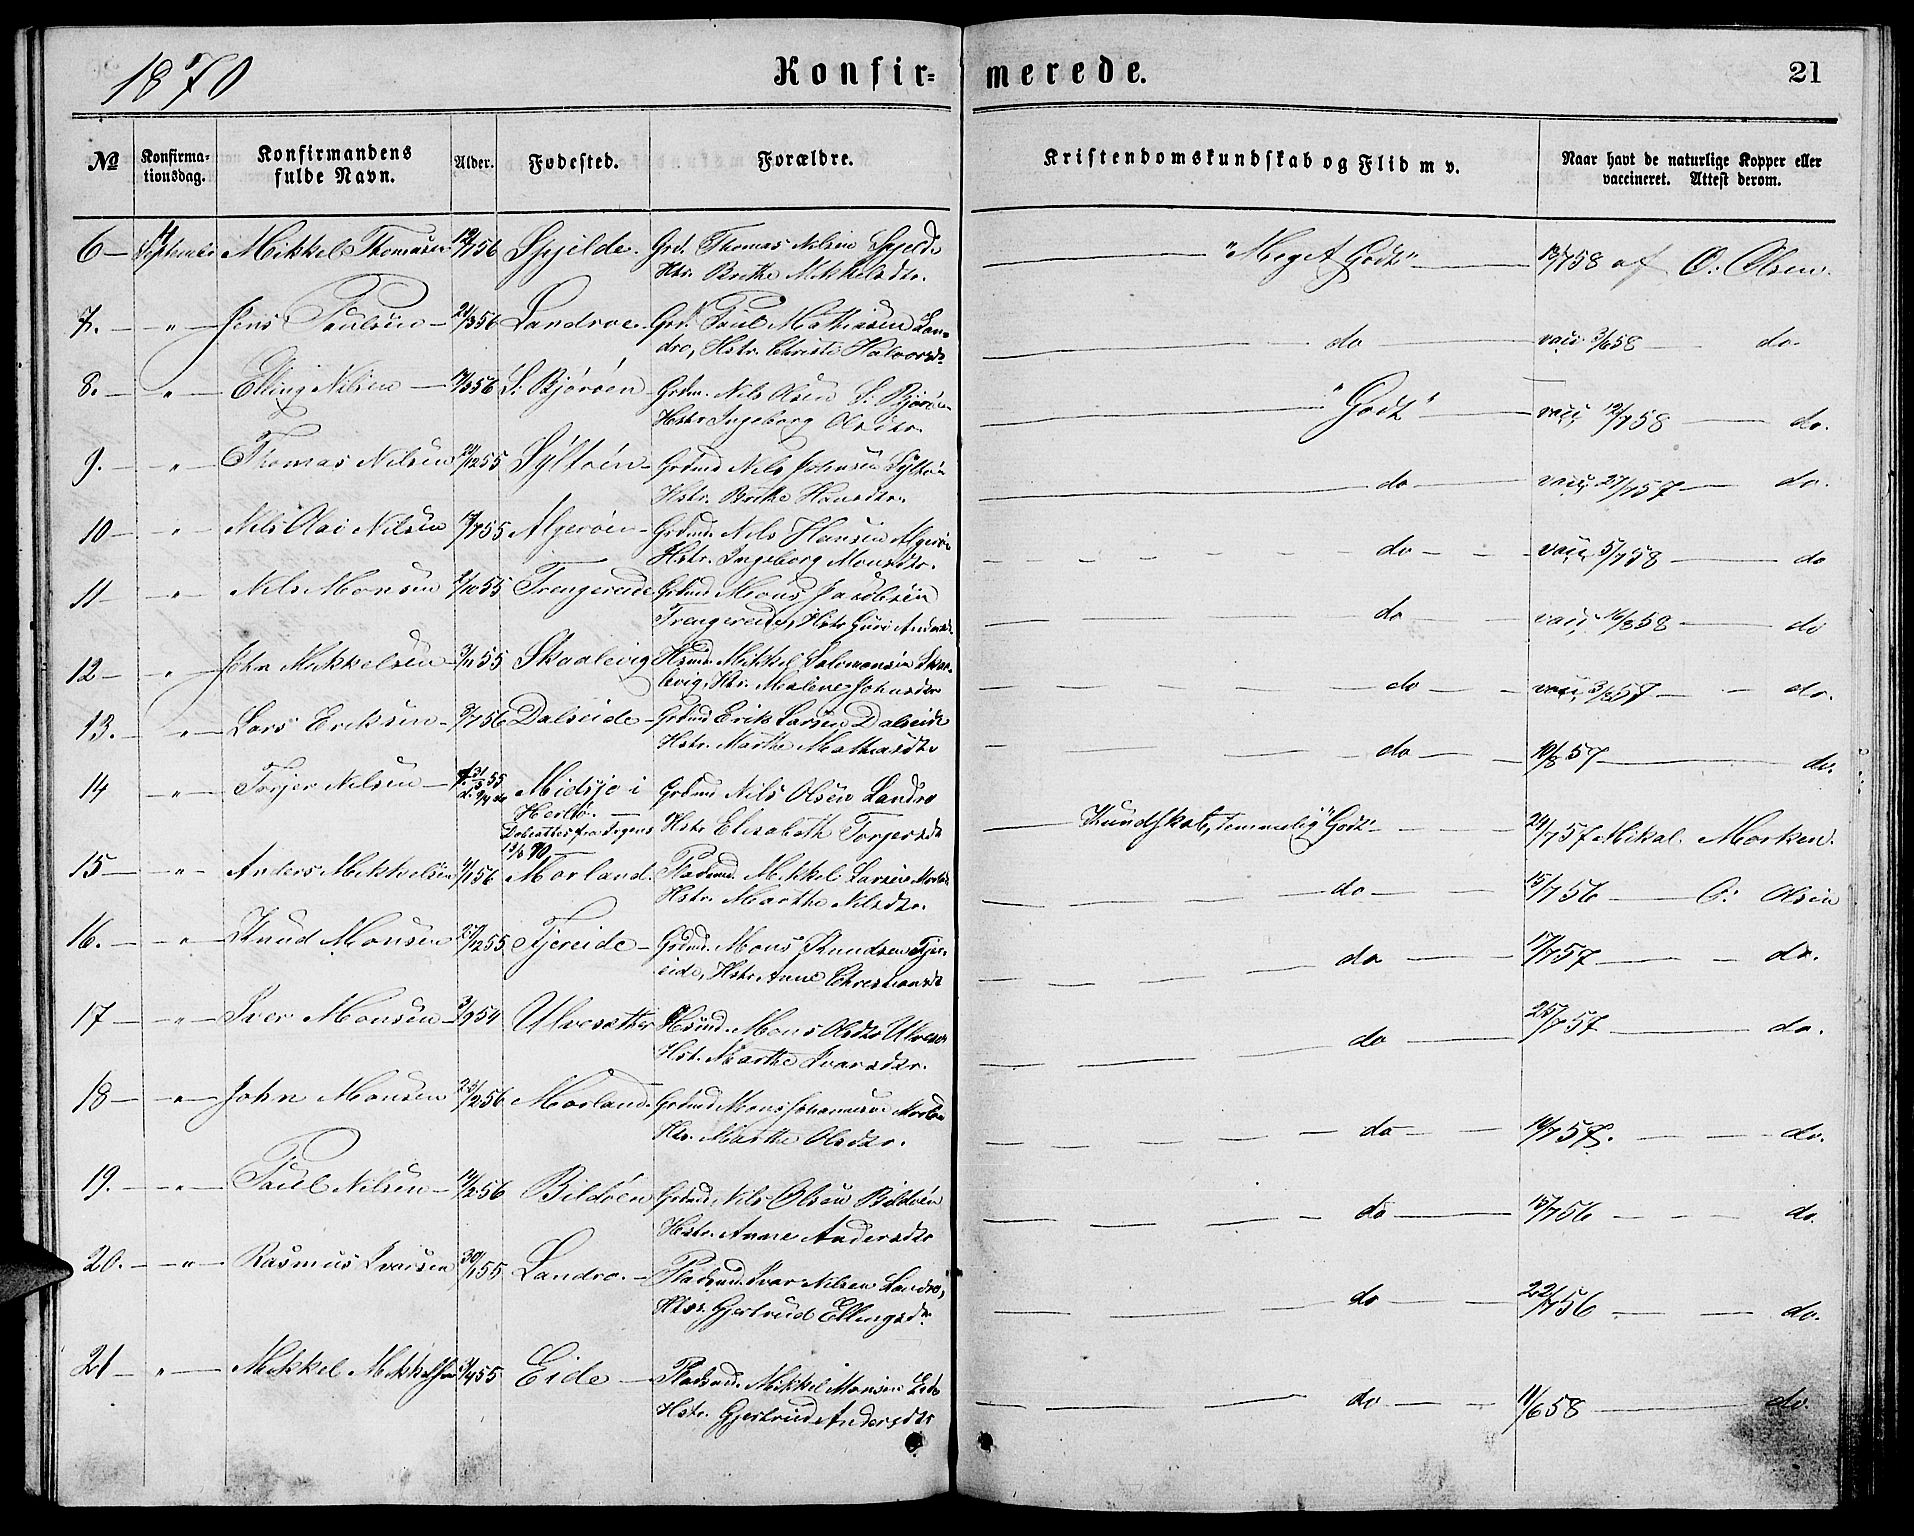 1870
Konfir= merede. 21
No Konfirma- tionsdag. Konfirmandens fulde Navn. Alder. Fødested. Forældre. Kristendomskundskab og Flid m v. Naar havt de naturlige Kopper eller vaccineret. Attest derom.
6 — September Mikkel Thomasen 56 Spjelde. Grd. Thomas Nilsen Spjelde — "Meget Godt" — 758 af O. Olsen.
Hstr. Brithe Mikkelsdtr.
7. — " — Jens Paulsen — 21/3 56 Landroe. Grd. Paul Mathiasen Lan-
dro, Hstr. Christi Halvorsdtr — do — vacc 3/6 58 — do.
8. — " — Elling Nilsen — 56 S. Bjørøen Grdm. Nils Olsen S. Bjørøen
Hstr Ingeborg Olsdtr. — "Godt" — vacc 12/7 58 — do.
9. — " — Thomas Nilsen 12 55 Syltøen — Grdmd Nils Johnsen Syltøen
Hstr. Brithe Hansdtr. — do — vacc 27/7 57 — do.
10 — " — Nils Olai Nilsen 7 55 Algerøen — Grdmd. Nils Hansen Algerøen
Hstr. Ingeborg Monsdtr. — do — vacc 5/7 58 — do
11 — " — Nils Monsen 10 55 Trengereide Grdmd Mons Jacobsen
Trengereide, Hstr Guri Andersdtr — do — vacc 58 — do
12 — " — John Mikkelsen 3/11 55 Skaalevig Hsmd. Mikkel Salomonsen Skaa-
levig, Hstr. Malene Johnsdtr — do — vacc 3/8 57 — do.
13. — " — Lars Eriksen — 7 56 Dalseide — Grdmd Erik Larsen Dalseide
Hstr. Marthe Mathiasdtr — do — 10/8 57 — do.
14 — " — Torjer Nilsen — f. 31/3 55 Midsjo i Grdmd Nils Olsen Landro
Herlø. — Hstr Elisabeth Torjersdtr — Kundskab, temmelig "Godt" — 24/7 57 Mikal Morken.
13/6 70 —
15 — " — Anders Mikkelsen 1 56 Morland. Pladsmd. Mikkel Larsen Morland
Hstr. Marthe Nilsdtr. — do — 15/7 56 — O. Olsen
16. — " — Knud Monsen 27/12 55 Fjereide — Grdmd. Mons Knudsen Fjer-
eide, Hstr. Anne Christiansdtr — do — 17/7 57 — do.
17 — " — Iver Monsen — 3/9 54 Ulvesæther Hsmd. Mons Olsen Ulvesæ
Hst. Marthe Ivarsdtr. — do — 25/7 57 — do.
18 — " — John Monsen 23/2 56 Morland. Grdmd Mons Johannesen Morland
Hstr. Marthe Olsdtr. — do — 16/7 57. — do.
19. — " — Paul Nilsen — 2 56 Bildøen Grdmd. Nils Olsen Bildøen
Hstr. Anne Andersdtr — do — 15/7 56 — do.
20. — " — Rasmus Ivarsen 30/1 55 Landro. — Pladsmd. Ivar Nilsen Landro,
Hstr. Gjertrud Ellingsdtr — do — 22/7 56 — do.
21 — " — Mikkel Mikkelsen 4 55 Eide — Pladsmd. Mikkel Monsen Eide
Hstr. Gjertrud Andersdtr — do — 11/6 58 — do.